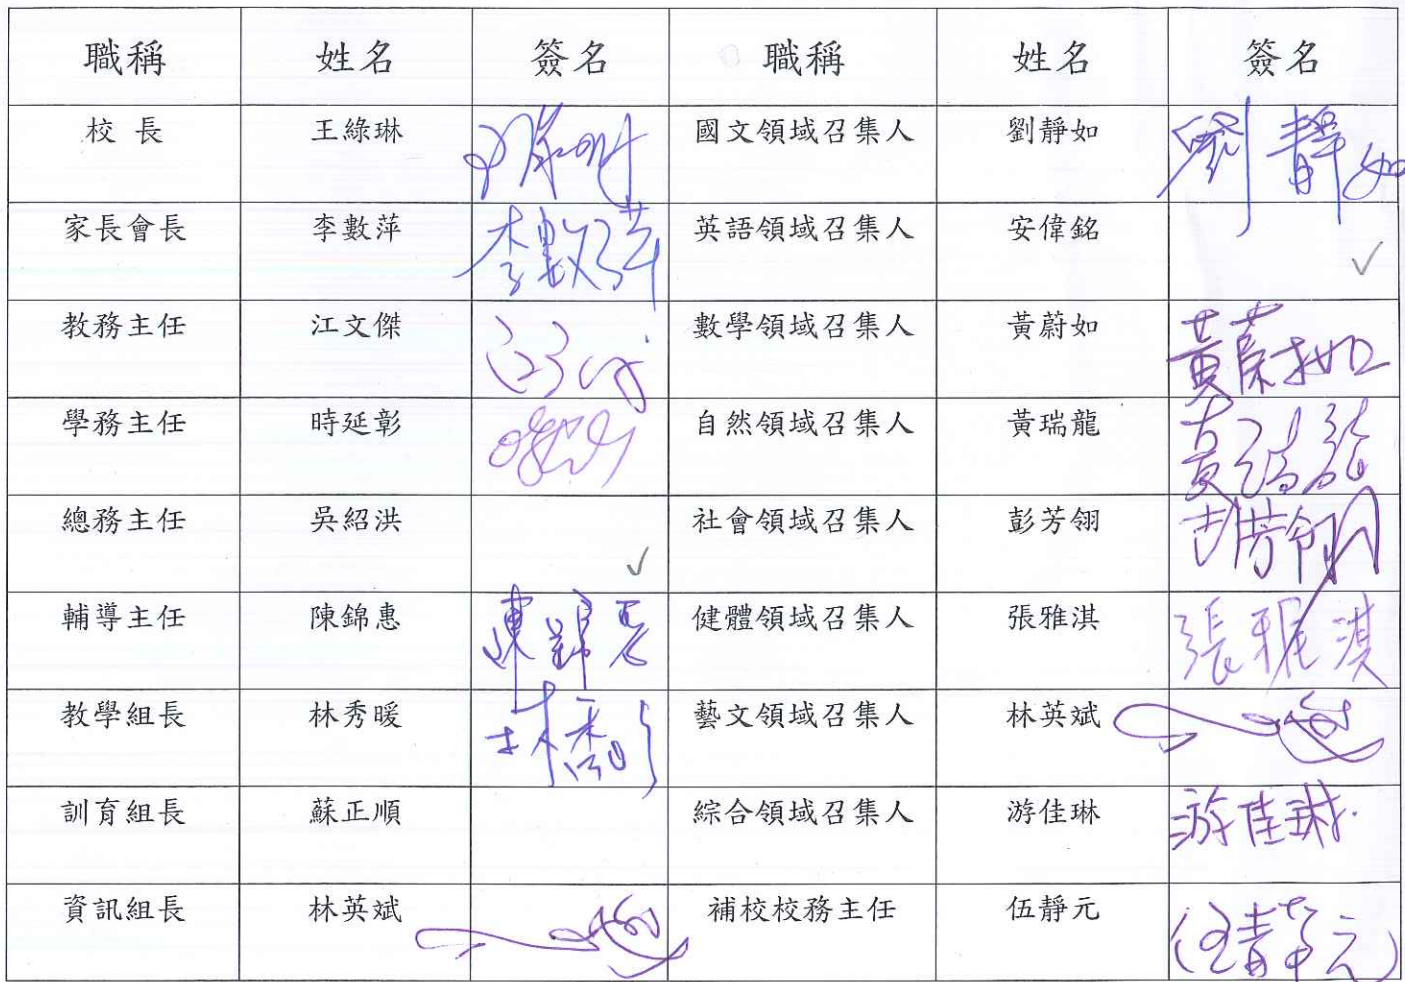 職稱 姓名 簽名 職稱 姓名 簽名
校 長 王綠琳 國文領域召集人 劉靜如 劉靜如
家長會長 李數萍 李數萍 英語領域召集人 安偉銘 ✓
教務主任 江文傑 數學領域召集人 黃蔚如 黃蔚如
學務主任 時延彰 自然領域召集人 黃瑞龍 黃瑞龍
總務主任 吳紹洪 ✓ 社會領域召集人 彭芳翎 彭芳翎
輔導主任 陳錦惠 陳錦惠 健體領域召集人 張雅淇 張雅淇
教學組長 林秀暖 藝文領域召集人 林英斌
訓育組長 蘇正順 綜合領域召集人 游佳琳 游佳琳
資訊組長 林英斌 補校校務主任 伍靜元 伍靜元